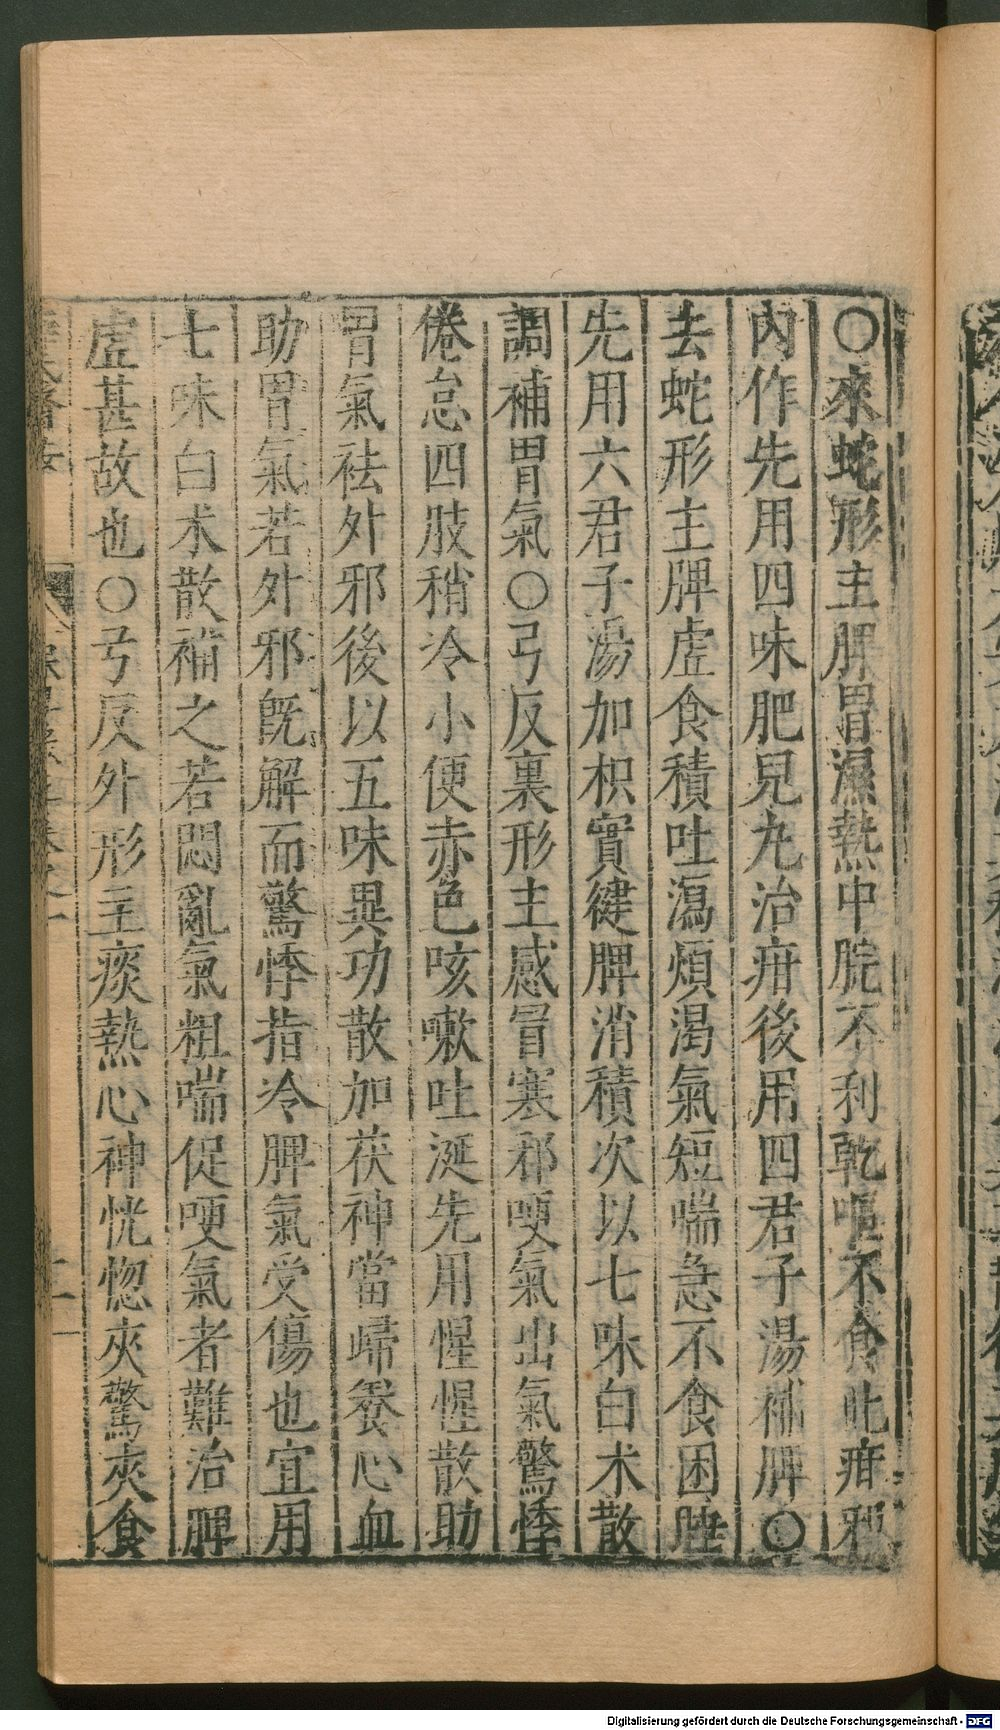 〇來蛇形主脾胃濕熱中脘不利乾嘔不食此疳邪
内作先用四味肥兒丸治疳後用四君子湯補脾〇
去蛇形主脾虛食積吐瀉煩渴氣短喘急不食困睡
先用六君子湯加枳實健脾消積次以七味白朮散
調補胃氣〇弓反裏形主感冒寒邪哽氣出氣驚悸
倦怠四肢稍冷小便赤色咳嗽吐涎先用惺惺散助
胃氣袪外邪後以五味異功散加茯神當歸養心血
助胃氣若外邪既解而驚悸指冷脾氣受傷也宜用
七味白朮散補之若悶亂氣粗喘促哽氣者難治脾
虛甚故也〇弓反外形主痰熱心神恍惚夾驚夾食
Digitalisierung gefördert durch die Deutsche Forschungsgemeinschaft - DFG